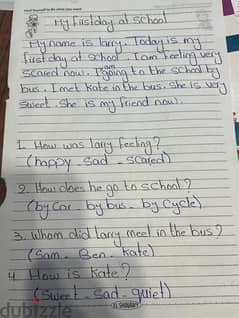 My first day at school
My name is larry. Today is my
first day at school. I am feeling very
scared now. I am going to the school by
bus. I met Kate in the bus. She is very
sweet. She is my friend now.
1. How was larry feeling?
(happy - sad - scared)
2. How does he go to school?
(by Car - by bus - by Cycle)
3. Whom did larry meet in the bus?
(Sam - Ben - Kate)
4. How is Kate?
(Sweet - sad - quiet)
dubizzle